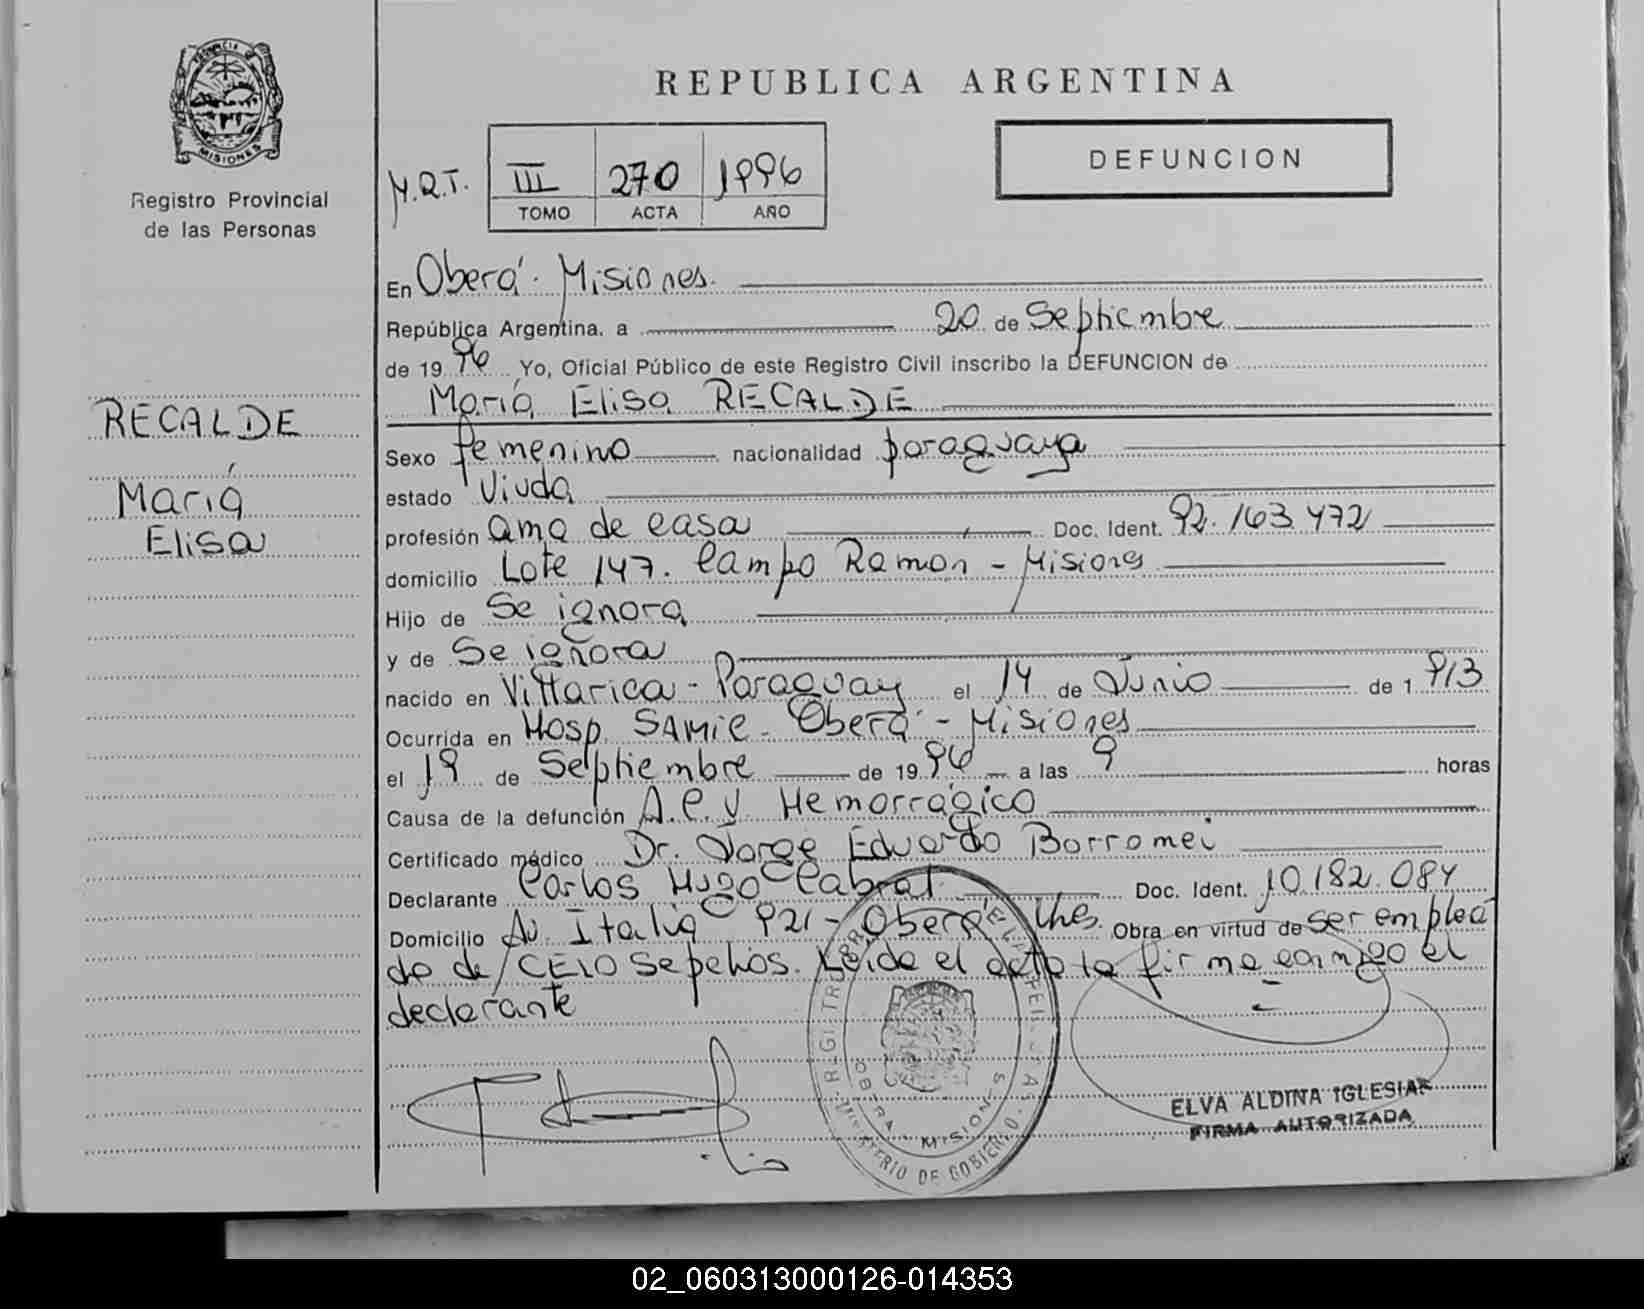 PROVINCIA DE
MISIONES
Registro Provincial
de las Personas
RECALDE
María
Elisa
REPUBLICA ARGENTINA
DEFUNCION
M.R.T. III 270 1996
TOMO ACTA AÑO
En Oberá. Misiones.
República Argentina. a 20 de Septiembre
de 19 96 Yo, Oficial Público de este Registro Civil inscribo la DEFUNCION de
María Elisa RECALDE
Sexo femenino nacionalidad paraguaya
estado Viuda
profesión ama de casa Doc. Ident. 92.163.472
domicilio Lote 147. Campo Ramon - Misiones
Hijo de Se ignora
y de Se ignora
nacido en Villarica - Paraguay el 14 de Junio de 1 913
Ocurrida en Hosp. SAMIC - Oberá - Misiones
el 19 de Septiembre de 19 96 a las 9 horas
Causa de la defunción A.C.V. Hemorrágico
Certificado médico Dr. Jorge Eduardo Borromei
Declarante Carlos Hugo Cabral Doc. Ident. 10.182.084
Domicilio Av. Italia 921 - Oberá Mnes. Obra en virtud de ser emplea
do de CELO Sepelios. Leida el acta la firma conmigo el
declarante
OBERA - MISIONES
MINISTERIO DE GOBIERNO
ELVA ALDINA IGLESIAS
FIRMA AUTORIZADA
02_060313000126-014353